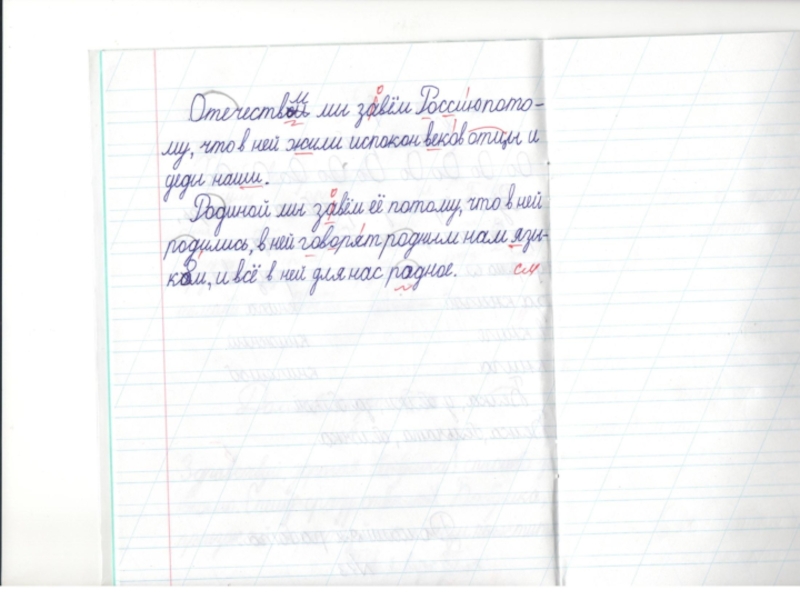 Отечеством мы завём Россию пото-
му, что в ней жили испокон веков отцы и
деды наши.
Родиной мы завём её потому, что в ней
родились, в ней говорят родным нам язы-
ком, и всё в ней для нас радное. см